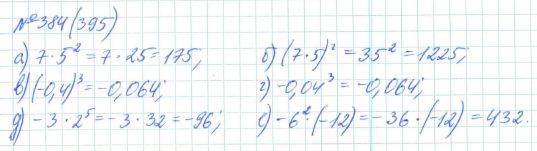 №384(395)
а) 7·5² = 7·25 = 175; б) (7·5)² = 35² = 1225;
в) (-0,4)³ = -0,064; г) -0,04³ = -0,064;
д) -3·2⁵ = -3·32 = -96; е) -6²·(-12) = -36·(-12) = 432.